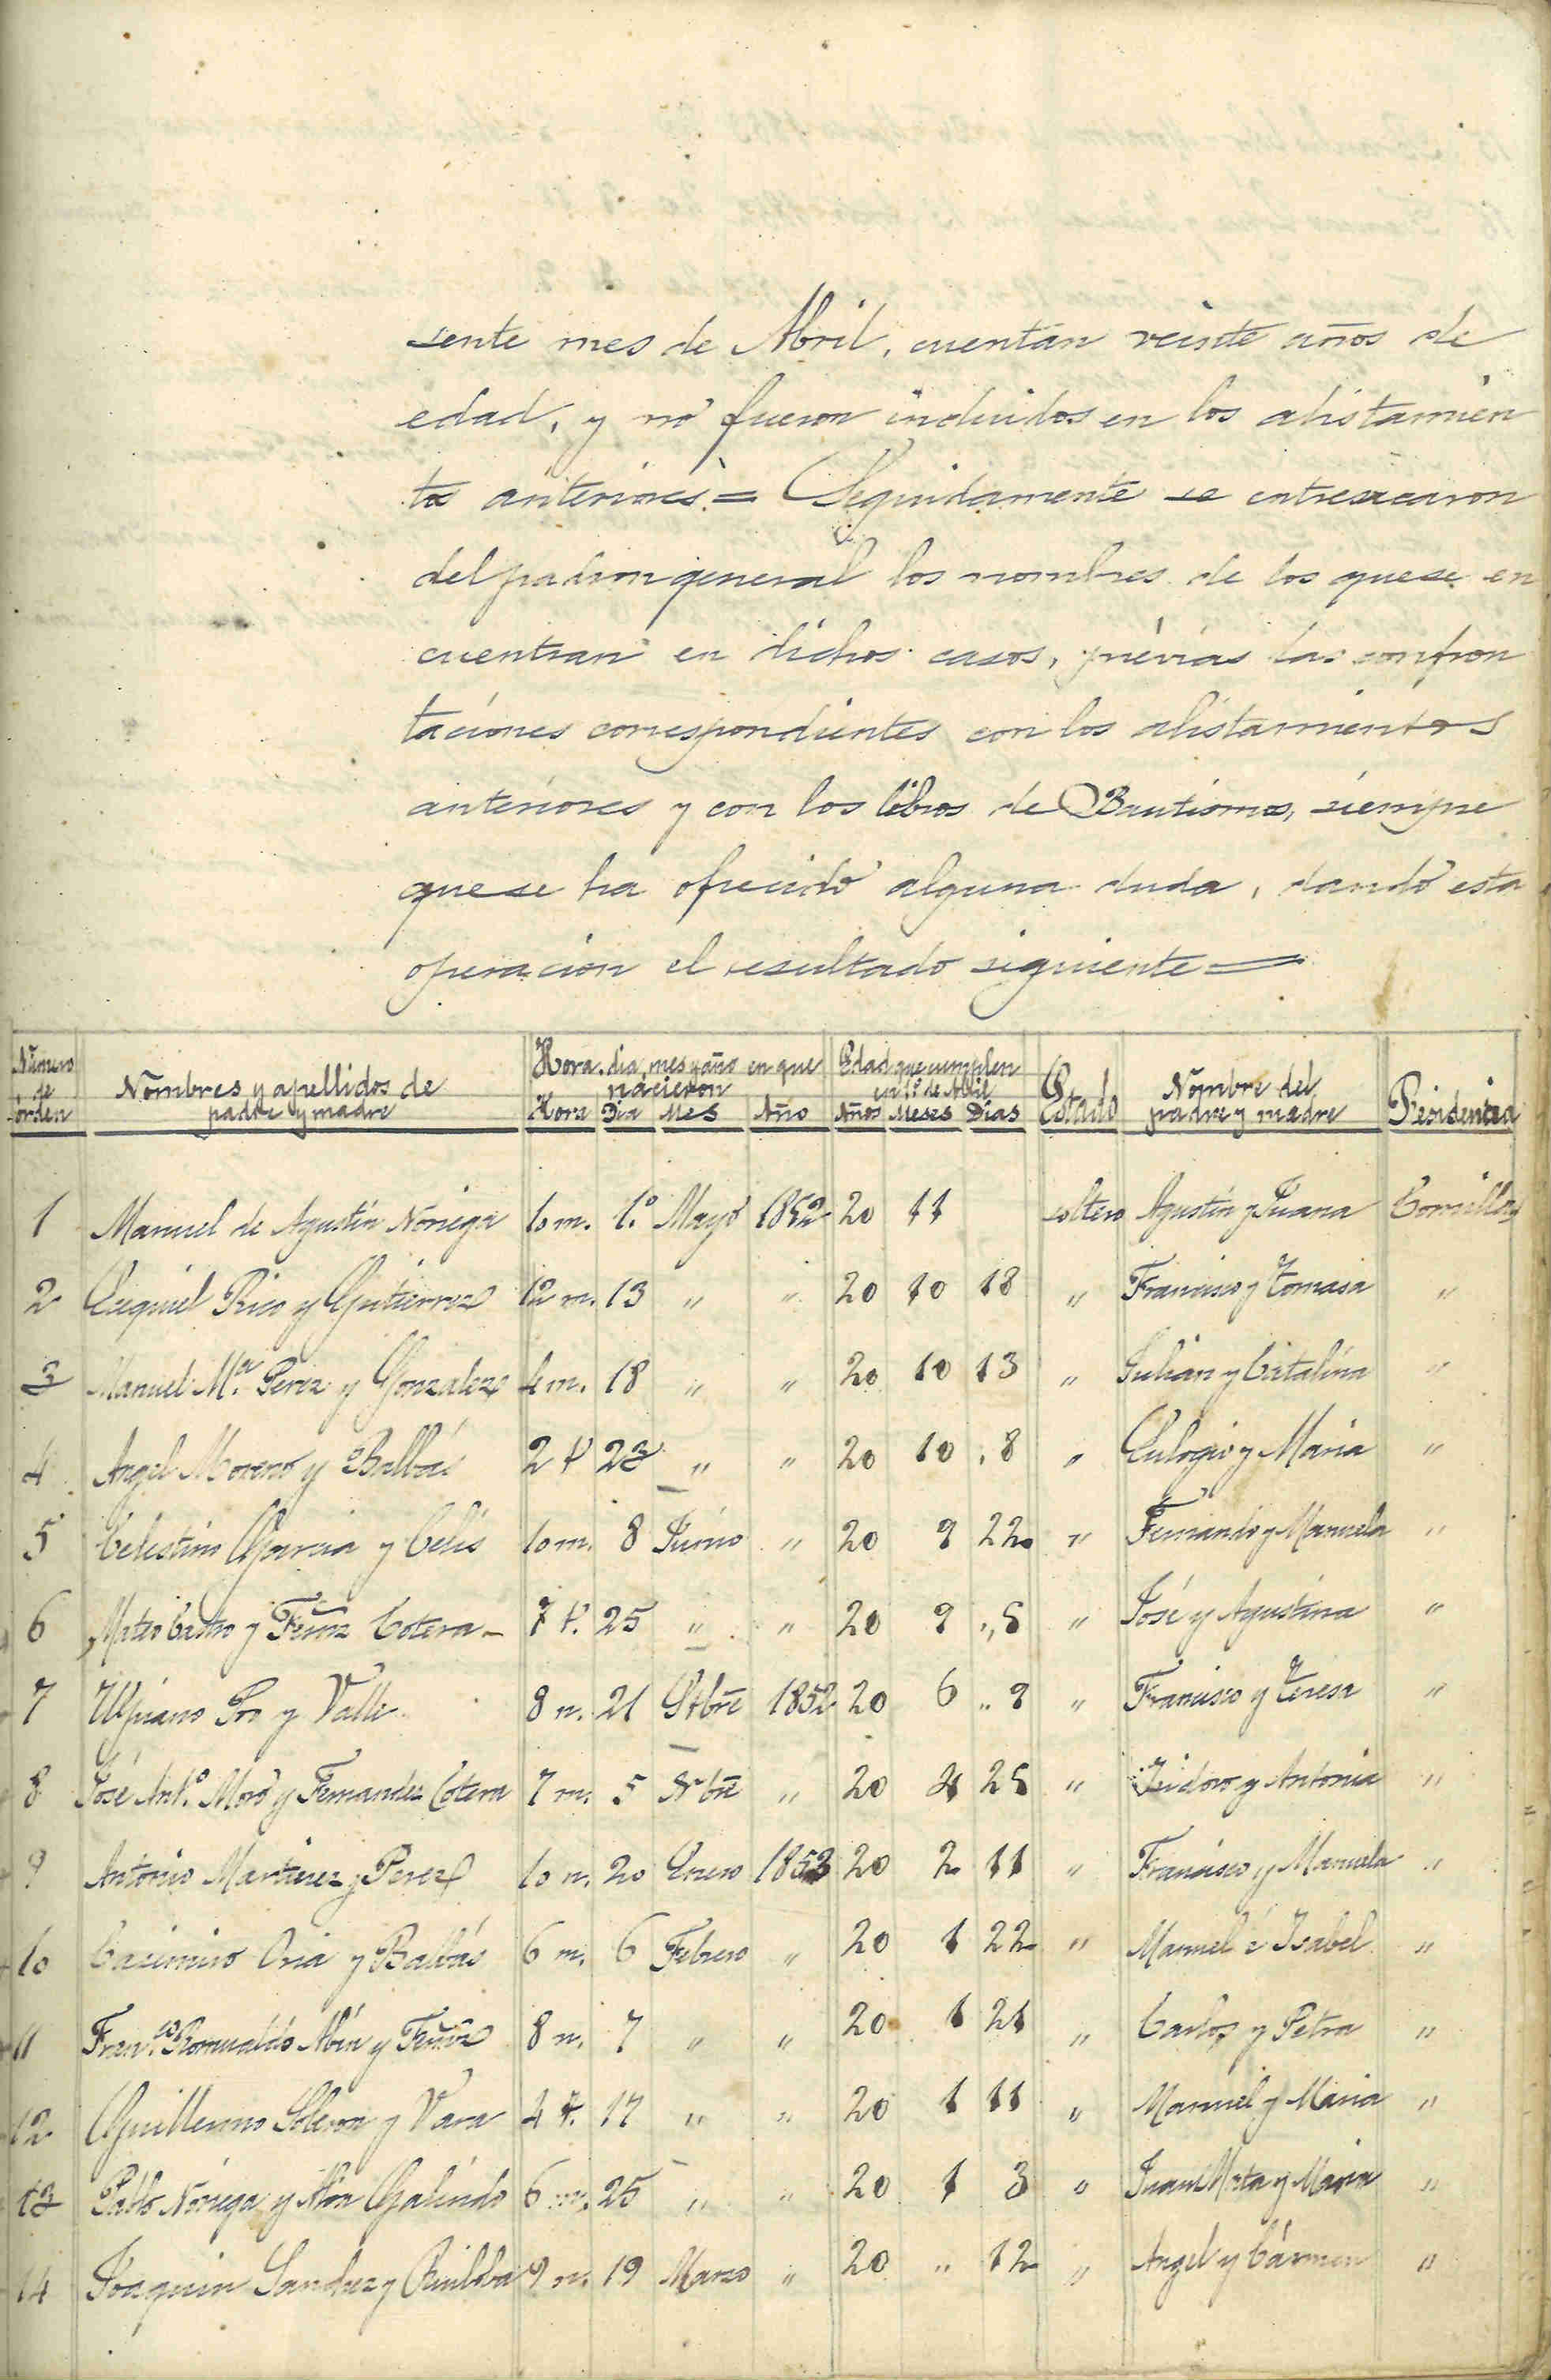 sente mes de Abril, cuentan veinte años de
edad, y nó fueron incluidos en los alistamien
tos anteriores = Seguidamente se entresacaron
del padron general los nombres de los que se en
cuentran en dichos casos, prévias las confron
taciones correspondientes con los alistamientos
anteriores y con los libros de Bautismos, siempre
que se ha ofrecido alguna duda, dando esta
operacion el resultado siguiente =
Número de órden | Nombres y apellidos de padre y madre | Hora, dia, mes y año en que nacieron | Edad que cumplen en 1º de Abril | Estado | Nombre del padre y madre | Residencia
Hora Dia Mes Año | Años Meses Dias
1 Manuel de Agustin Noriega 10 m. 1.º Mayo 1852 20 11 soltero Agustin y Juana Comillas
2 Ezequiel Rico y Gutierrez 12 m. 13 " " 20 10 18 " Francisco y Tomasa "
3 Manuel M.ª Perez y Gonzalez 4 m. 18 " " 20 10 13 " Julian y Catalina "
4 Angel Moreno y Balbás 2 t. 23 " " 20 10 8 " Eulogio y Maria "
5 Celestino Garcia y Celis 10 m. 8 Junio " 20 9 22 " Fernando y Manuela "
6 Mateo Castro y Fernz Cotera 7 t. 25 " " 20 9 " 5 " José y Agustina "
7 Ulpiano Poo y Valle 8 n. 21 Stbre 1852 20 6 " 9 " Francisco y Teresa "
8 José Ant.º Moro y Fernandez Cotera 7 m. 5 Nbre " 20 4 25 " Isidoro y Antonia "
9 Antonio Martinez y Perez 10 n. 20 Enero 1853 20 2 11 " Francisco y Manuela "
10 Casimiro Oria y Balbás 6 m. 6 Febrero " 20 1 22 " Manuel é Isabel "
11 Fran.co Romualdo Abin y Fernz 8 n. 7 " " 20 1 21 " Carlos y Petra "
12 Guillermo Soleron y Vara 4 t. 17 " " 20 1 11 " Manuel y Maria "
13 Pablo Noriega y Galindo 6 m. 25 " " 20 1 3 " Juan y Maria "
14 Joaquin Sanchez y Ruiloba 9 n. 19 Marzo " 20 " 12 " Angel y Cármen "